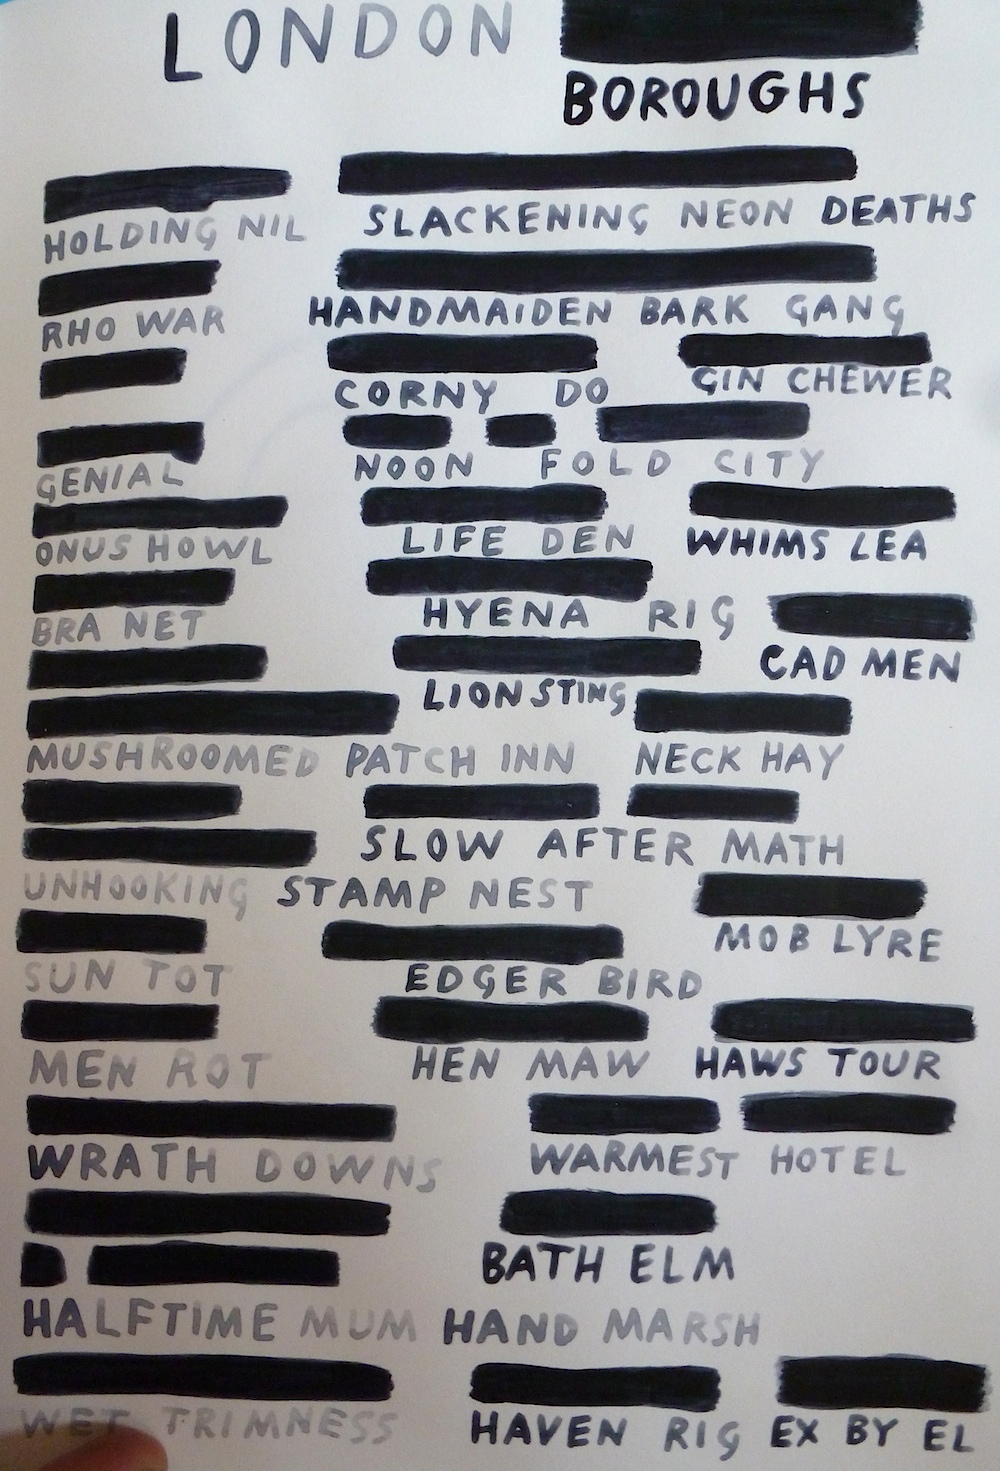 LONDON
BOROUGHS
HOLDING NIL SLACKENING NEON DEATHS
RHO WAR HANDMAIDEN BARK GANG
CORNY DO GIN CHEWER
GENIAL NOON FOLD CITY
ONUS HOWL LIFE DEN WHIMS LEA
BRA NET HYENA RIG
CAD MEN
LION STING
MUSHROOMED PATCH INN NECK HAY
SLOW AFTER MATH
UNHOOKING STAMP NEST
MOB LYRE
SUN TOT EDGER BIRD
MEN ROT HEN MAW HAWS TOUR
WRATH DOWNS WARMEST HOTEL
BATH ELM
HALFTIME MUM HAND MARSH
WET TRIMNESS HAVEN RIG EX BY EL